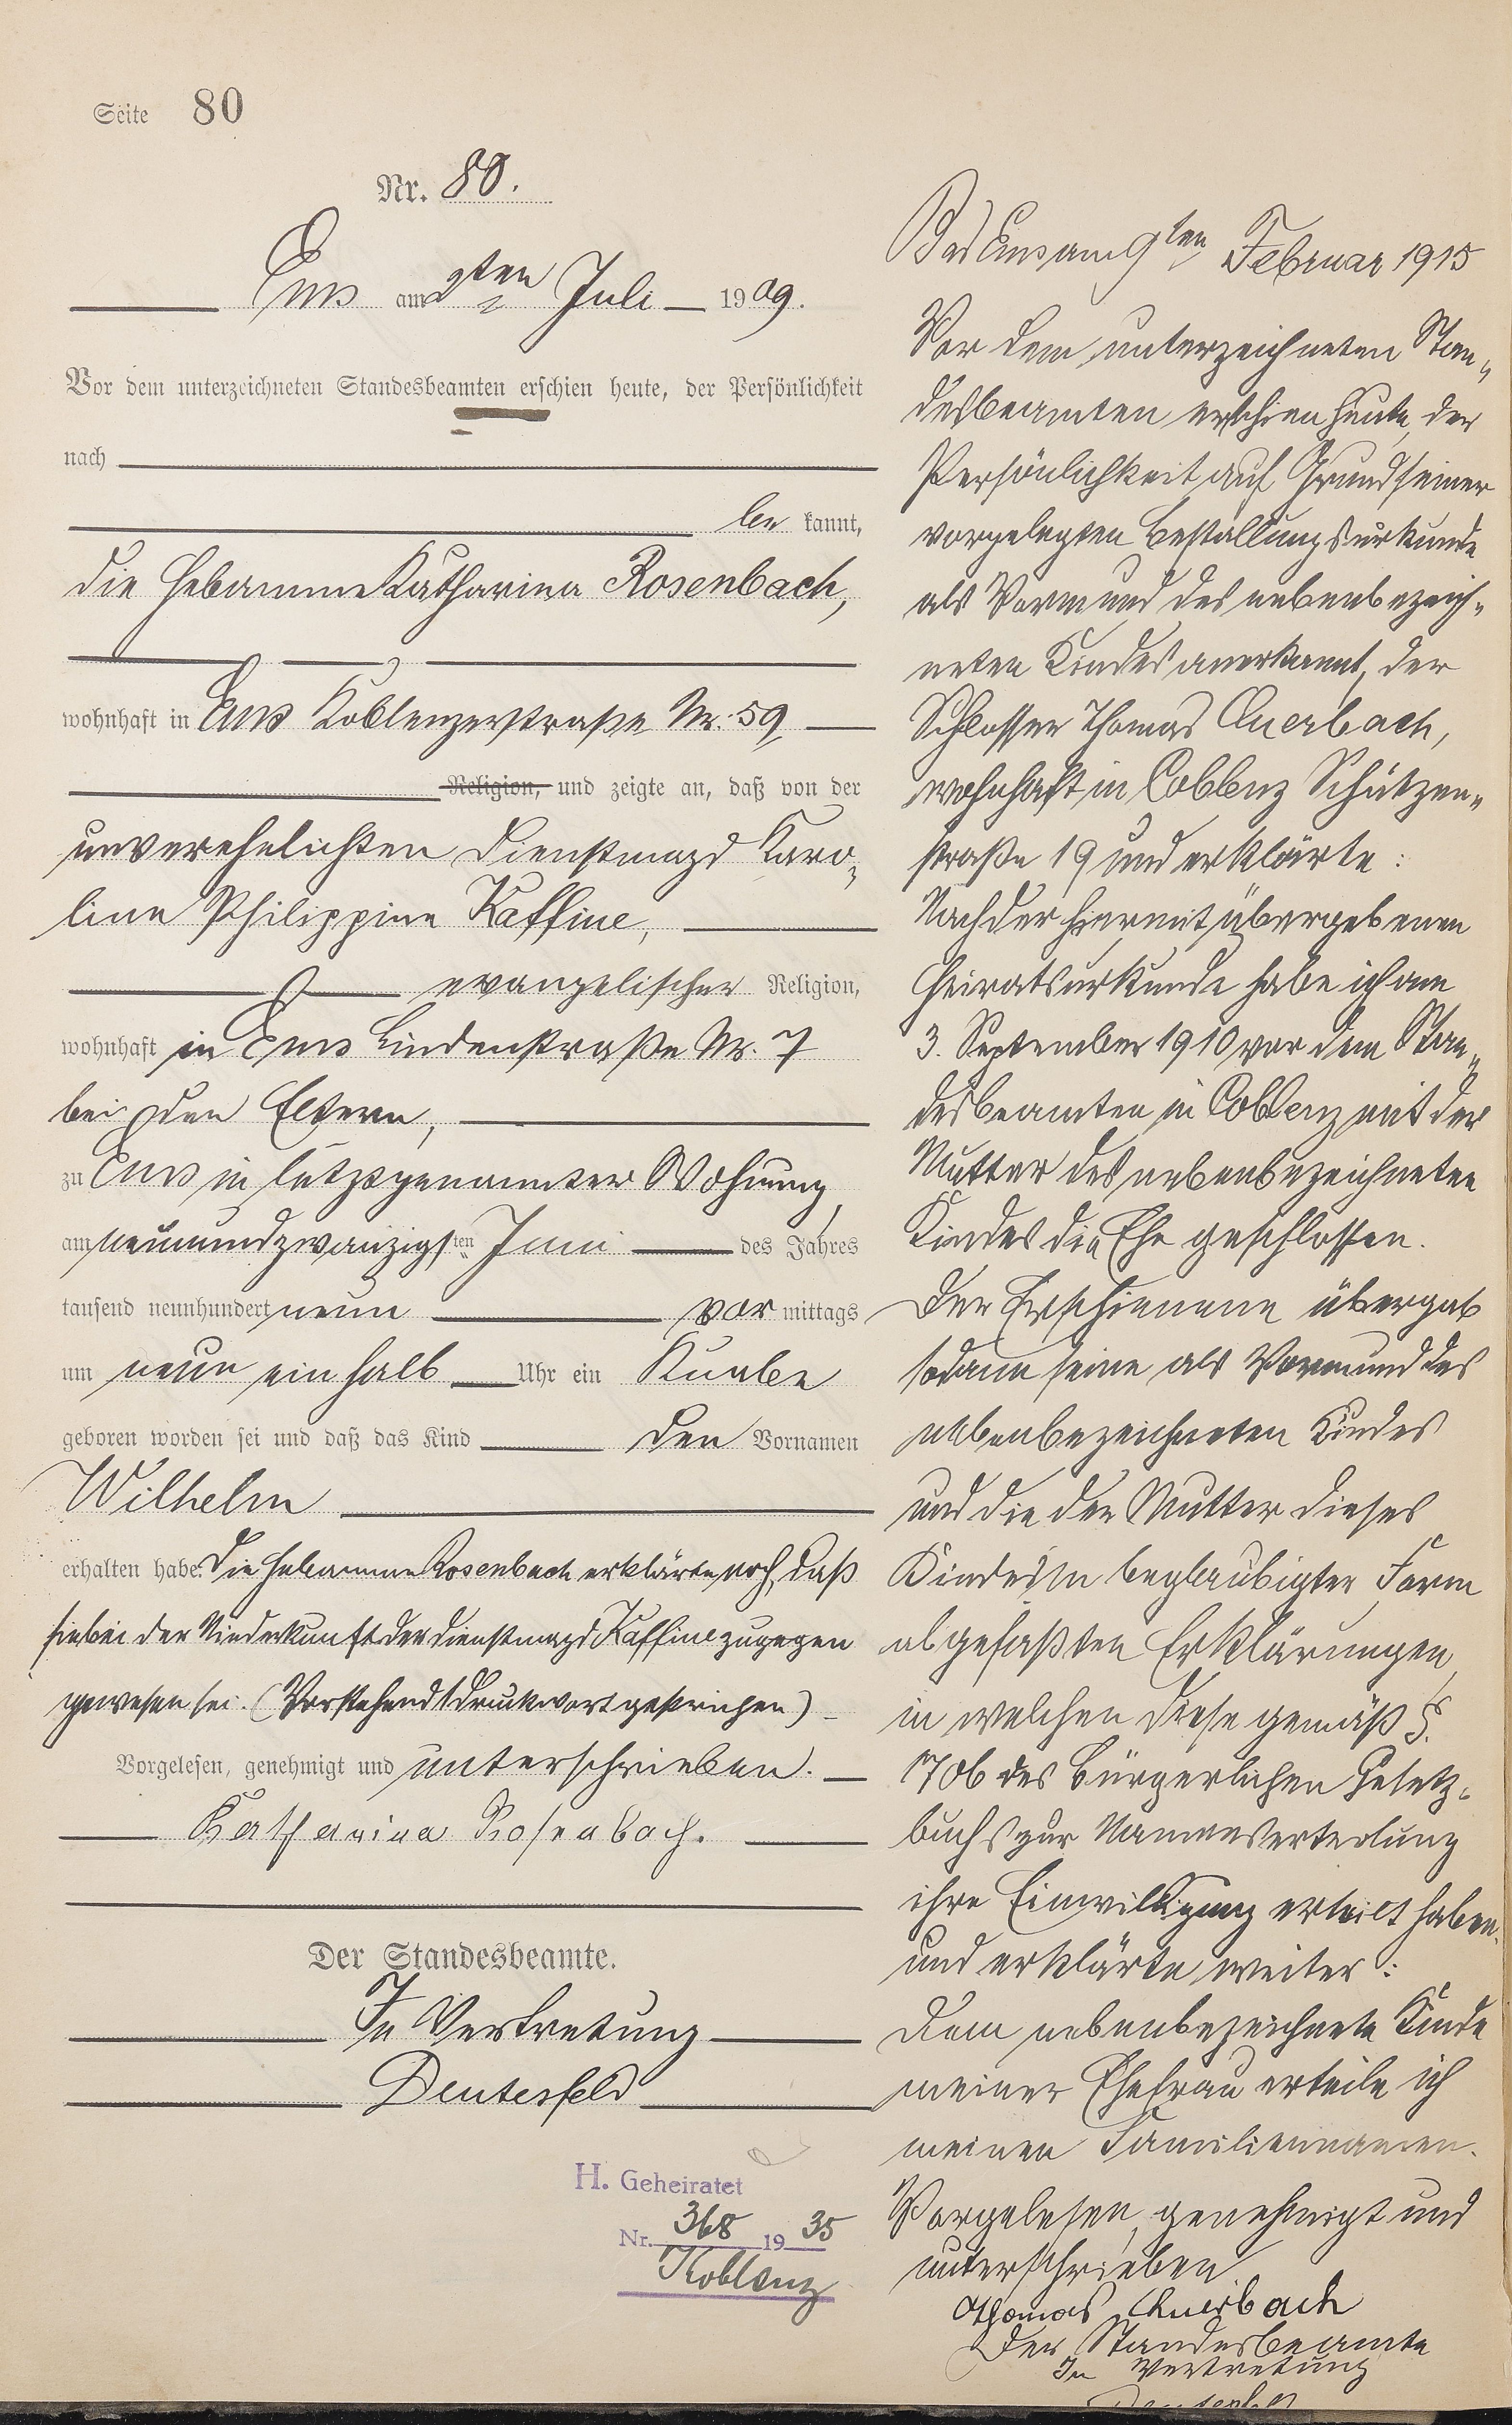 Seite 80
Nr. 80.
Ems am 2ten Juli 1909.
Vor dem unterzeichneten Standesbeamten erschien heute, der Persönlichkeit
nach
be kannt,
die Hebamme Katharina Rosenbach,
wohnhaft in Ems Koblenzerstraße Nr. 59,
Religion, und zeigte an, daß von der
unverehelichten Dienstmagd Karo-
line Philippine Kaffine,
evangelischer Religion,
wohnhaft in Ems Lindenstraße Nr. 7
bei den Eltern,
zu Ems in letztgenannter Wohnung,
am neunundzwanzigsten Juni des Jahres
tausend neunhundert neun vor mittags
um neun einhalb Uhr ein Knabe
geboren worden sei und daß das Kind den Vornamen
Wilhelm
erhalten habe. Die Hebamme Rosenbach erklärte noch, daß
sie bei der Niederkunft der Dienstmagd Kaffine zugegen
gewesen sei. (Vorstehend 1 Druckwort gestrichen)
Vorgelesen, genehmigt und unterschrieben.
Katharina Rosenbach.
Der Standesbeamte.
In Vertretung
Deutesfeld
H. Geheiratet
Nr. 368 1935
Koblenz
Bad Ems am 9ten Februar 1915
Vor dem unterzeichneten Stan-
desbeamten erschien heute, der
Persönlichkeit auf Grund seiner
vorgelegten Bestallungsurkunde
als Vormund des nebenbezeich-
neten Kindes anerkannt, der
Schlosser Thomas Auerbach,
wohnhaft in Coblenz Schützen-
straße 19 und erklärte:
Nach der hiermit übergebenen
Heiratsurkunde habe ich am
3. September 1910 vor dem Stan-
desbeamten in Coblenz mit der
Mutter des nebenbezeichneten
Kindes die Ehe geschlossen.
Der Erschienene übergab
sodann seine als Vormund des
nebenbezeichneten Kindes
und die der Mutter dieses
Kindes in beglaubigter Form
abgefaßten Erklärungen,
in welchen diese gemäß §.
1706 des Bürgerlichen Gesetz-
buchs zur Namenserteilung
ihre Einwilligung erteilt haben
und erklärte weiter:
Dem nebenbezeichnete Kinde
meiner Ehefrau erteile ich
meinen Familiennamen.
Vorgelesen, genehmigt und
unterschrieben
Thomas Auerbach
Der Standesbeamte
In Vertretung